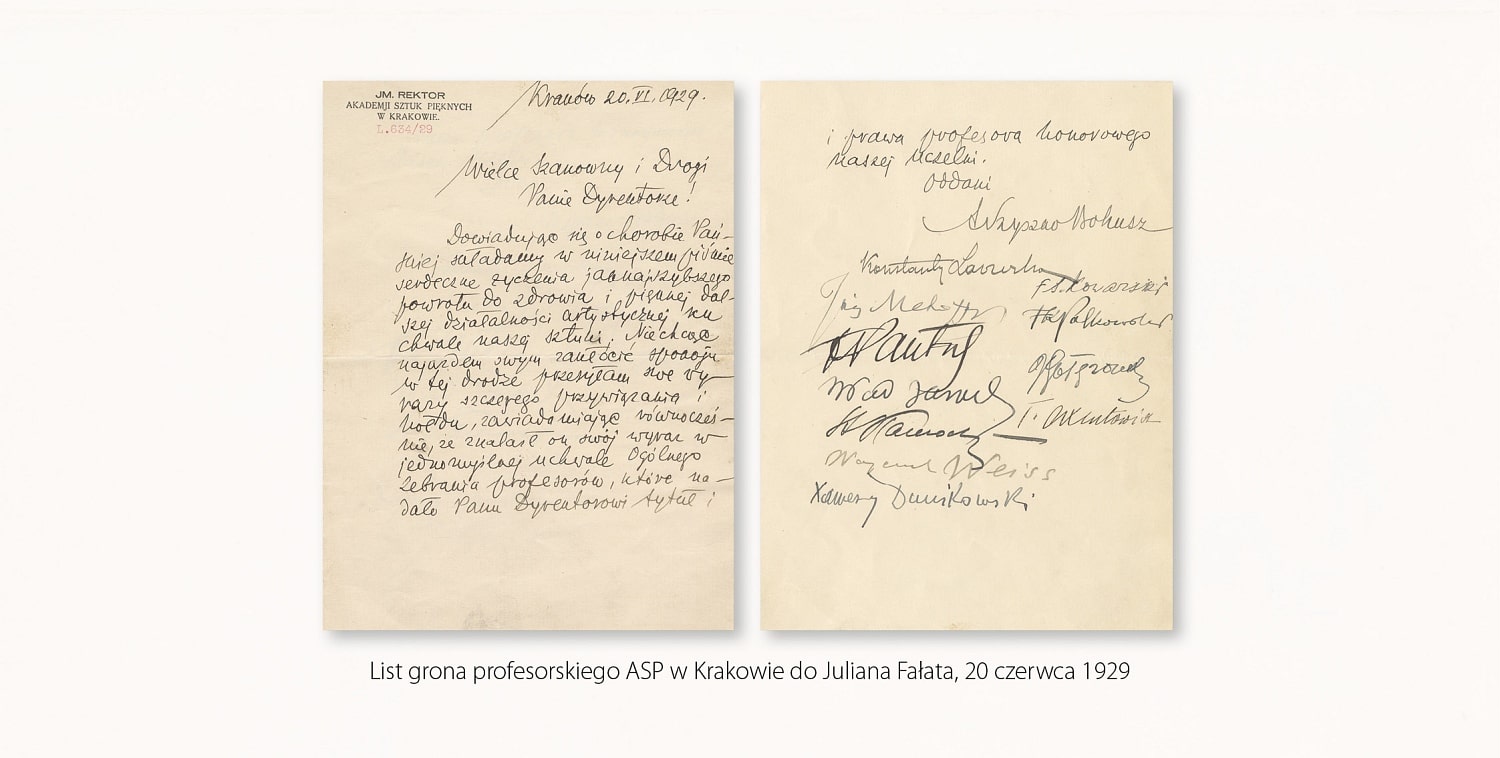 JM. REKTOR
AKADEMJI SZTUK PIĘKNYCH
W KRAKOWIE.
L.634/29
Kraków 20.VI.1929.
Wielce Szanowny i Drogi
Panie Dyrektorze!
Dowiadując się o chorobie Pań-
skiej składamy w niniejszem piśmie
serdeczne życzenia jaknajszybszego
powrotu do zdrowia i pięknej dal-
szej działalności artystycznej ku
chwale naszej sztuki. Nie chcąc
najazdem swym zakłócić spokoju
w tej drodze przesyłam swe wy-
razy szczerego przywiązania i
hołdu, zawiadamiając równocześ-
nie, że znalazł on swój wyraz w
jednomyślnej uchwale Ogólnego
Zebrania profesorów, które na-
dało Panu Dyrektorowi tytuł i
i prawa profesora honorowego
naszej Uczelni.
Oddani
A Szyszko Bohusz
Konstanty Laszczka
F. S. Kowarski
Józ Mehoffer
Fr Pautsch
Wład Jarocki
St Kamocki
Wojciech Weiss
Xawery Dunikowski
List grona profesorskiego ASP w Krakowie do Juliana Fałata, 20 czerwca 1929